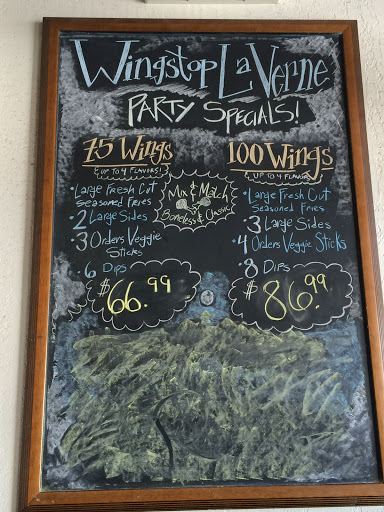 Wingstop La Verne
Party Specials!
75 Wings
& up to 4 flavors!
• Large Fresh Cut
Seasoned Fries
• 2 Large Sides
• 3 Orders Veggie
Sticks
• 6 Dips
$66.99
Mix & Match
Boneless & Classic
100 Wings
& up to 4 flavors
• Large Fresh Cut
Seasoned Fries
• 3 Large Sides
• 4 Orders Veggie Sticks
• 8 Dips
$86.99